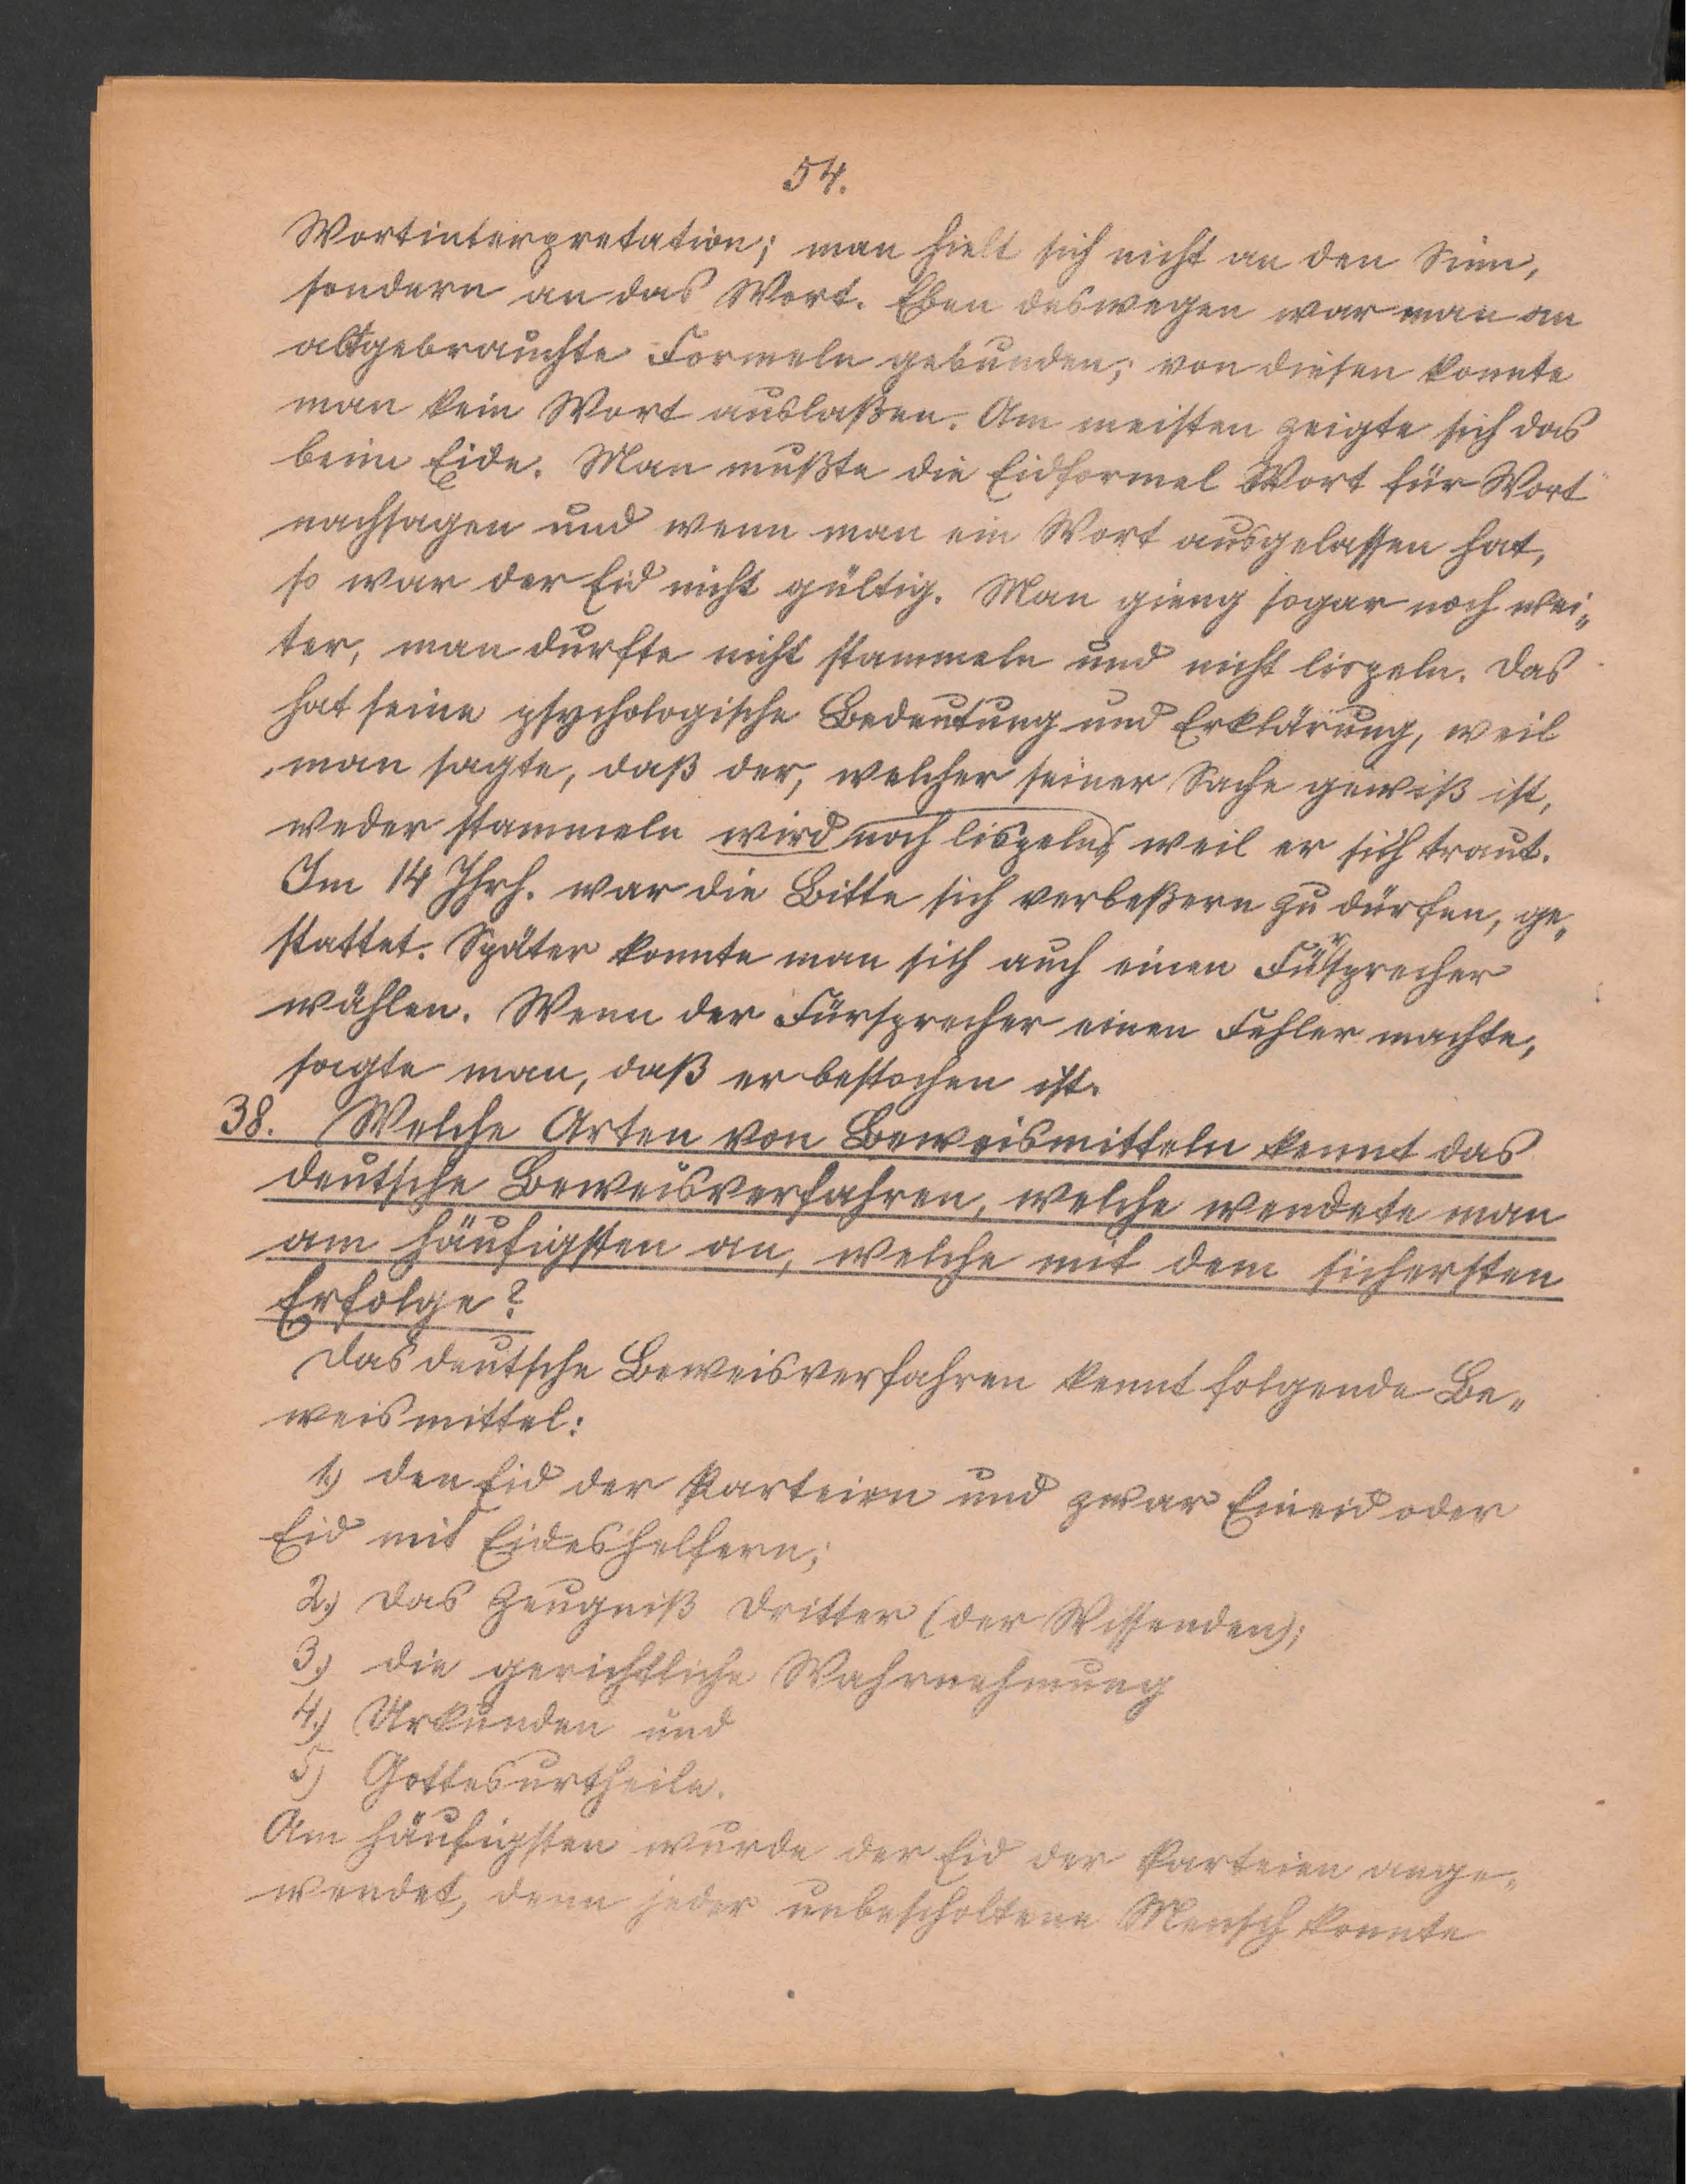 54.
Wortinterpretation; man hielt sich nicht an den Sinn,
sondern an das Wort. Eben deswegen war man an
altgebrauchte Formeln gebunden; von diesen konnte
man kein Wort auslaßen. Am meisten zeigte sich das
beim Eide. Man mußte die Eidformel Wort für Wort
nachsagen und wenn man ein Wort ausgelassen hat,
so war der Eid nicht gültig. Man gieng sogar noch wei„
ter, man durfte nicht stammeln und nicht lispeln. Das
hat seine psychologische Bedeutung und Erklärung, weil
man sagte, daß der, welcher seiner Sache gewiß ist,
weder stammeln wird noch lispeln, weil er sich traut.
Im 14 Jhrh. war die Bitte sich verbeßern zu dürfen, ge„
stattet. Später konnte man sich auch einen Fürsprecher
wählen. Wenn der Fürsprecher einen Fehler machte,
sagte man, daß er bestochen ist.
38. Welche Arten von Beweismitteln kennt das
deutsche Beweisverfahren, welche wendete man
am häufigsten an, welche mit dem sichersten
Erfolge?
Das deutsche Beweisverfahren kennt folgende Be„
weismittel:
1.) den Eid der Parteien und zwar Eineid oder
Eid mit Eideshelfern;
2.) das Zeugniß dritter (der Wissenden);
3.) die gerichtliche Wahrnehmung
4.) Urkunden und
5) Gottesurtheile.
Am häufigsten wurde der Eid der Parteien ange„
wendet, denn jeder unbescholtene Mensch konnte